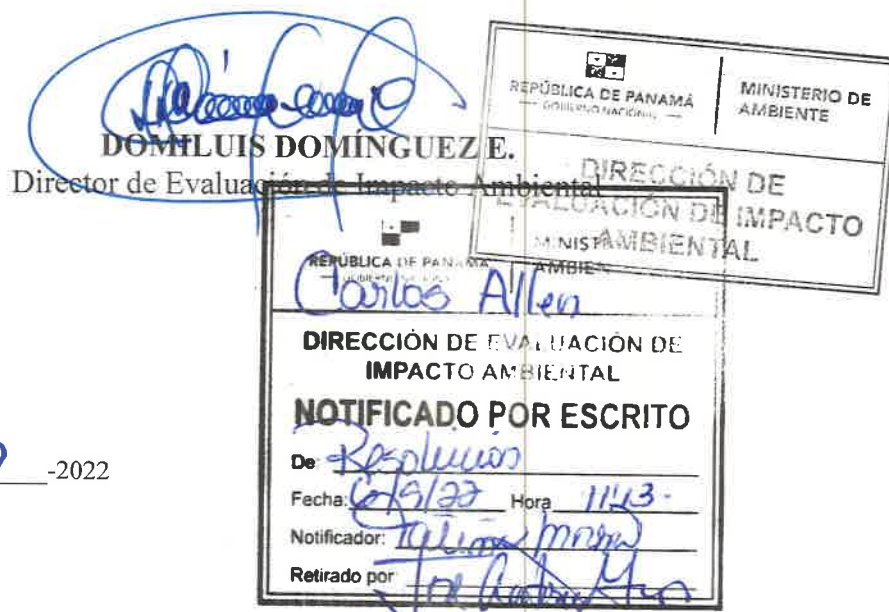 DOMILUIS DOMÍNGUEZ E.
Director de Evaluación de Impacto Ambiental
REPÚBLICA DE PANAMÁ
— GOBIERNO NACIONAL —
MINISTERIO DE
AMBIENTE
DIRECCIÓN DE
EVALUACIÓN DE IMPACTO
AMBIENTAL
REPÚBLICA DE PANAMÁ
Carlos Allen
DIRECCIÓN DE EVALUACIÓN DE
IMPACTO AMBIENTAL
NOTIFICADO POR ESCRITO
De Resolución
Fecha: 6/9/22 Hora 11:43
Notificador:
Retirado por
-2022